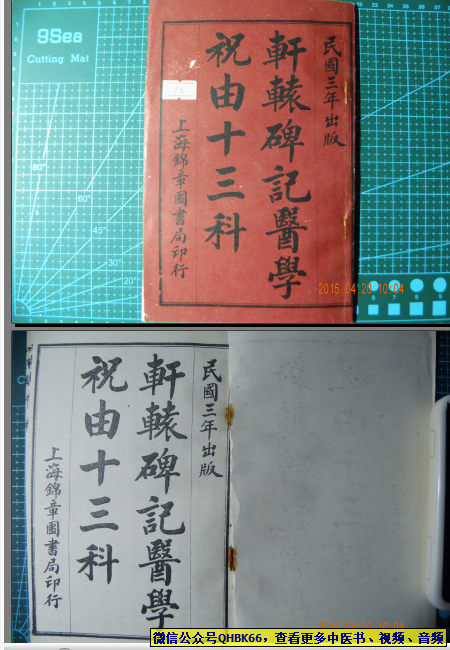 9Sea
Cutting Mat
民國三年出版
軒轅碑記醫學
祝由十三科
上海錦章圖書局印行
15
2015 04:23 10:04
民國三年出版
軒轅碑記醫學
祝由十三科
上海錦章圖書局印行
微信公众号QHBK66，查看更多中医书、视频、音频